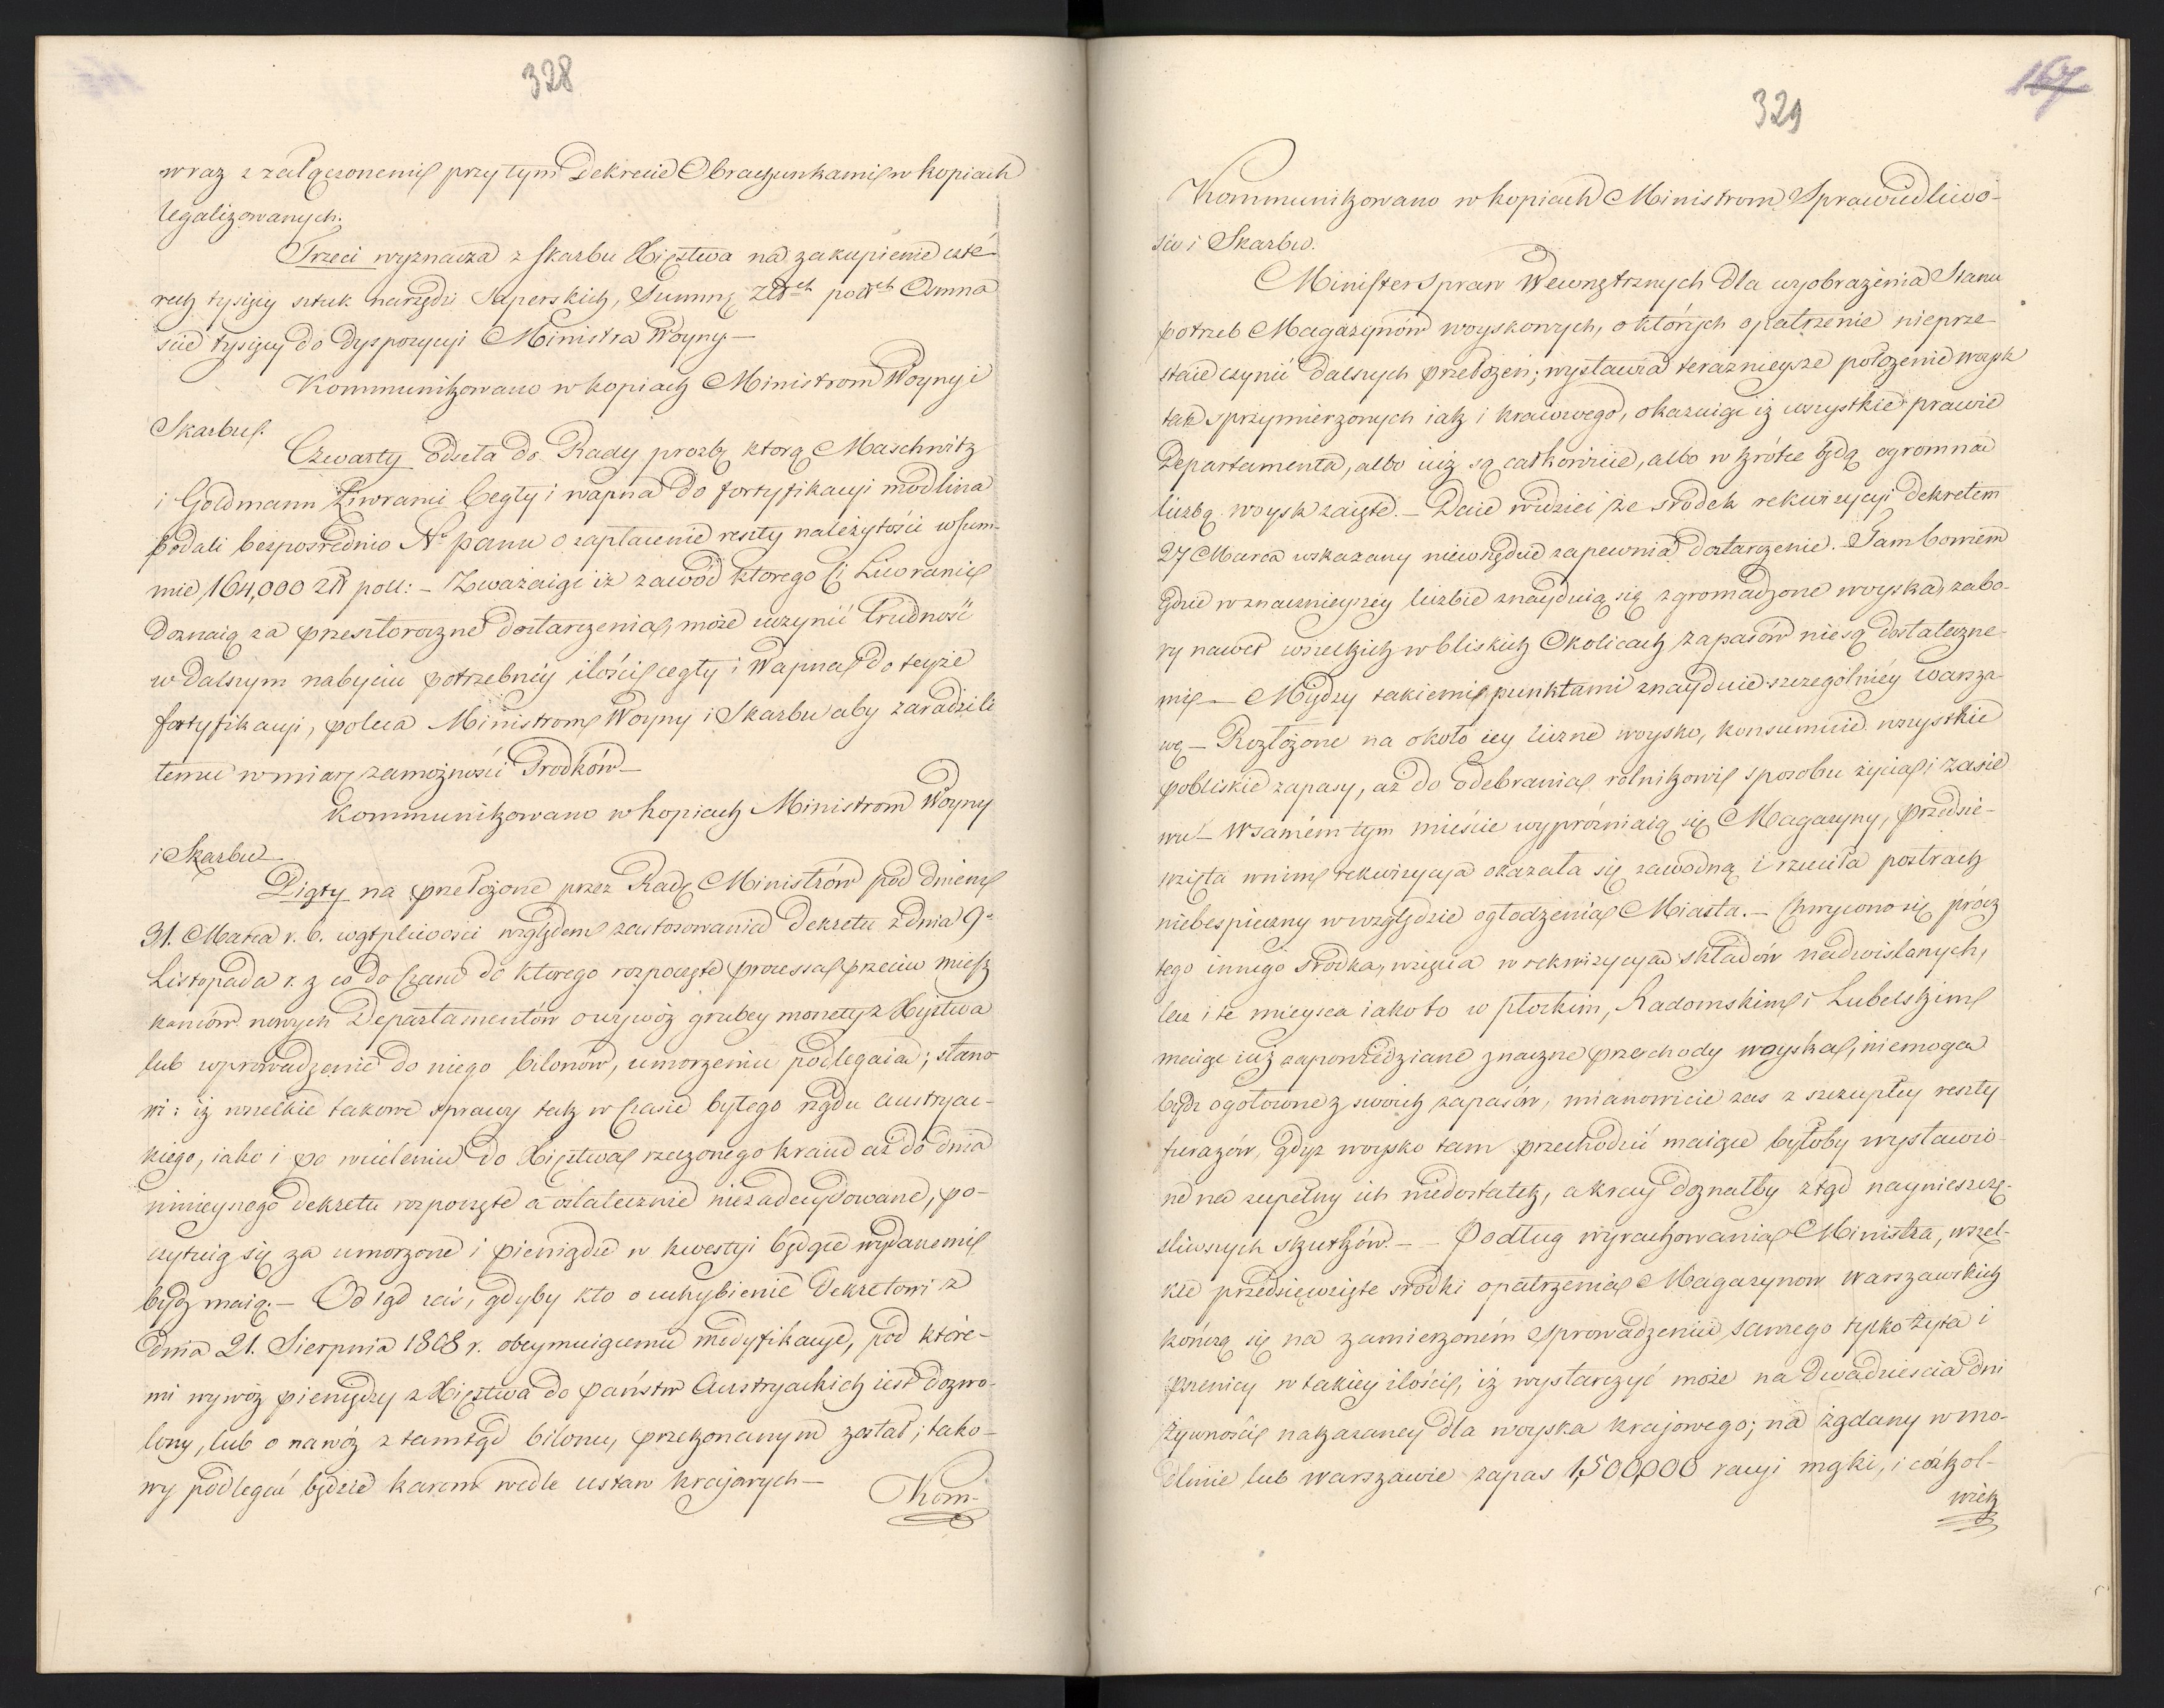 328
wraz z załączonemi przy tym Dekrecie Obrachunkami w kopiach
legalizowanych.
Trzeci wyznacza z skarbu Xięztwa na zakupienie czté-
rech tysięcy sztuk narzędzi Saperskich, Summę Złtch polch Ośmna
ście tysięcy do dyspozycyi Ministra Woyny —
Kommunikowano w kopiach Ministrom Woyny i
Skarbu.
Czwarty odseła do Rady prozbę ktorą Maschwitz
i Goldmann Liwranci Cegły i wapna do fortyfikacyi modlina
podali bezpośrednio No panu o zapłacenie reszty należytości w sum-
mie 164,000 Zł poll: — Zważaiąc iż zawód ktorego Ci Liwranci
doznaią za przeszłoroczne dostarczenia, może uczynić trudność
w dalszym nabyciu potrzebnéy ilości cegły i Wapna do teyże
fortyfikacyi, poleca Ministrom Woyny i Skarbu aby zaradzili
temu w miarę zamożności srodków —
Kommunikowano w kopiach Ministrom Woyny
i Skarbu —
Piąty na przełożone przez Radę Ministrów pod dniem
31. Marca r. b. wątpliwości względem zastosowania Dekretu z dnia 9o
Listopada r. z co do Czasu do ktorego rozpoczęte processa przeciw miesz
kańców nowych Departamentów o wywóz grubey monety z Xięztwa
lub wprowadzenie do niego bilonów, umorzeniu podlegaia; stano-
wi: iż wszelkie takowe sprawy tak w Czasie byłego rządu austryac-
kiego, iako i po wcieleniu do Xięztwa rzeczonego kraiu aż do dnia
ninieyszego dekretu rozpoczęte a ostatecznie niezadecydowane, po-
czytuią się za umorzone i pieniądze w kwestyi będące wydanemi
bydz maią. — Odtąd zaś, gdyby kto o uchybienie Dekretowi z
dnia 21. Sierpnia 1808 r. obeymuiącemu modyfikacye, pod które-
mi wywóz pieniędzy z Xięztwa do państw Austryackich iest dozwo-
lony, lub o nawóz z tamtąd bilonu, przekonanym został; tako-
wy podlegać będzie karom wedle ustaw krajowych —
Kom-
167
329
Kommunikowano w kopiach Ministrom Sprawiedliwo-
ści i Skarbu.
Minister Spraw Wewnętrznych dla wyobrażenia Stanu
potrzeb Magazynów woyskowych, o których opatrzenie nieprze-
staie czynić dalszych przełożeń; wystawia teraznieysze położenie woysk
tak sprzymierzonych iak i kraiowego, okazuiąc iż wszystkie prawie
Departamenta, albo iuż są całkowicie, albo wkrótce będą ogromna
liczbą woysk zaięte. — Daie widzieć że srodek rekwizycyi dekretem
27 Marca wskazany niewszędzie zapewnia dostarczenie. Tam bowiem
gdzie w znacznieyszey liczbie znayduią się zgromadzone woyska, zabo-
ry nawet wszelkich w bliskich Okolicach zapasów niesą dostateczne-
mi — Między takiemi punktami znayduie szczególniéy warsza-
wę — Rozłożone na około iey liczne woysko, konsumuie wszystkie
pobliskie zapasy, aż do odebrania rolnikowi sposobu życia i zasie
wu — W samém tym mieście wypróżniaią się Magazyny, przedsie-
wzięta w nim rekwizycya okazała się zawodną i rzuciła postrach
niebespieczny w względzie ogłodzenia Miasta. — Chwycono się prócz
tego innego srodka, wzięcia w rekwizycya składów nadwislanych,
lecz i te mieysca iako to w płockim, Radomskim i Lubelskim
maiąc iuż zapowiedziane znaczne przechody woyska, niemoga
bydz ogołocone z swoich zapasów, mianowicie zas z szczupłey reszty
furazów, gdyz woysko tam przechodzić maiące byłoby wystawio-
ne na zupełny ich niedostatek, a kray doznałby ztąd naynieszczę-
śliwszych skutków. — Podług wyrachowania Ministra, wszel-
kie przedsięwzięte srodki opatrzenia Magazynow warszawskich
kończą się na zamierzoném sprowadzeniu samego tylko żyta i
pszenicy w takiey ilości, iż wystarczyć może na dwadzieścia dni
żywności nakazaney dla woyska krajowego; na żądany w mo-
dlinie lub warszawie zapas 1,500,000 racyi mąki, i cożkol-
wiek